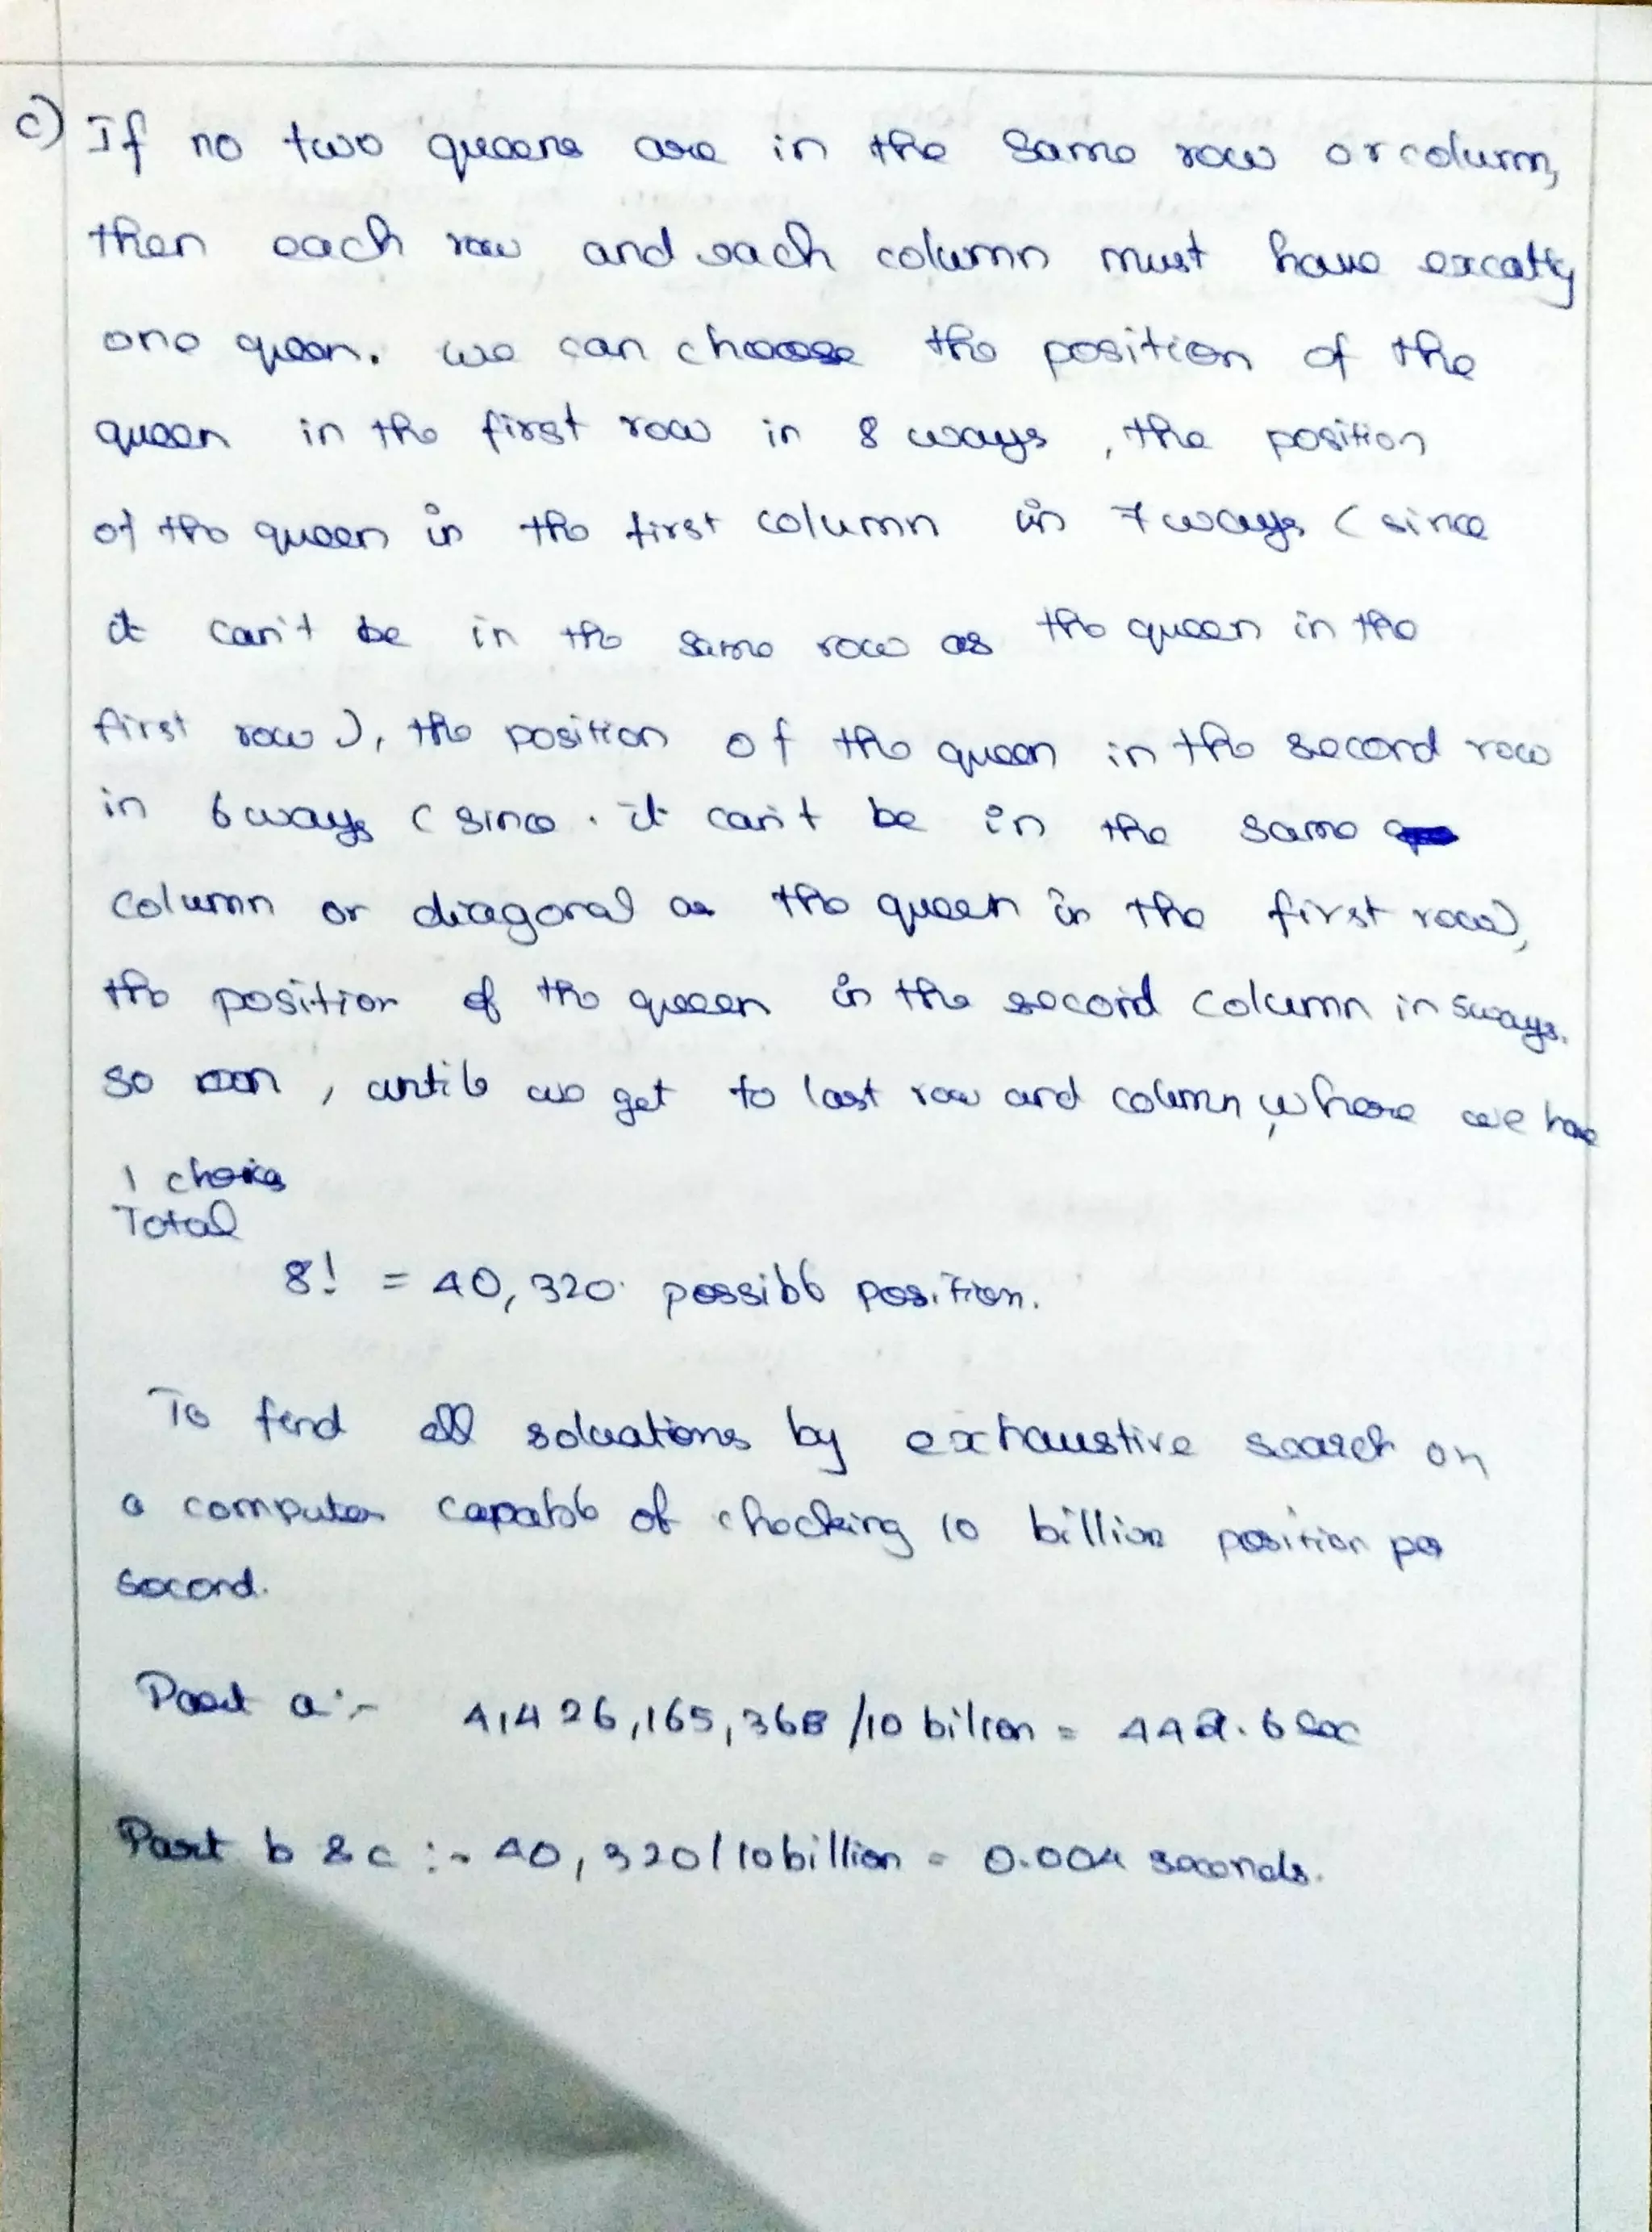 c) If no two queens are in the same row or column,
then each row and each column must have excatly
one queen. we can choose the position of the
queen in the first row in 8 ways, the position
of the queen in the first column in 7 ways (since
it can't be in the same row as the queen in the
first row), the position of the queen in the second row
in 6 ways (since. it can't be in the same
column or diagonal as the queen in the first row),
the position of the queen in the second column in 5 ways.
so on, until we get to last row and column, where we have
1 choice
Total
8! = 40,320 possible position.
To find all soluations by exhaustive search on
a computer capable of checking 10 billion position per
second.
Part a:- 4,426,165,368 /10 bilion = 442.6 sec
Part b & c :- 40,320/10billion = 0.004 seconds.